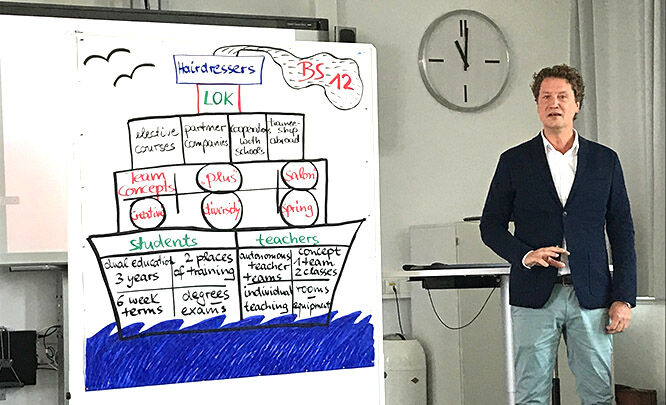 Hairdressers
BS 12
LOK
elective
courses
partner
companies
cooperation
with
schools
trainee-
ship
abroad
Team
concepts
plus
Salon
Creative
diversity
Spring
students
teachers
dual education
3 years
2 places
of training
autonomous
teacher
teams
concept
1 team
2 classes
6 week
terms
degrees
exams
individual
teaching
rooms
equipment